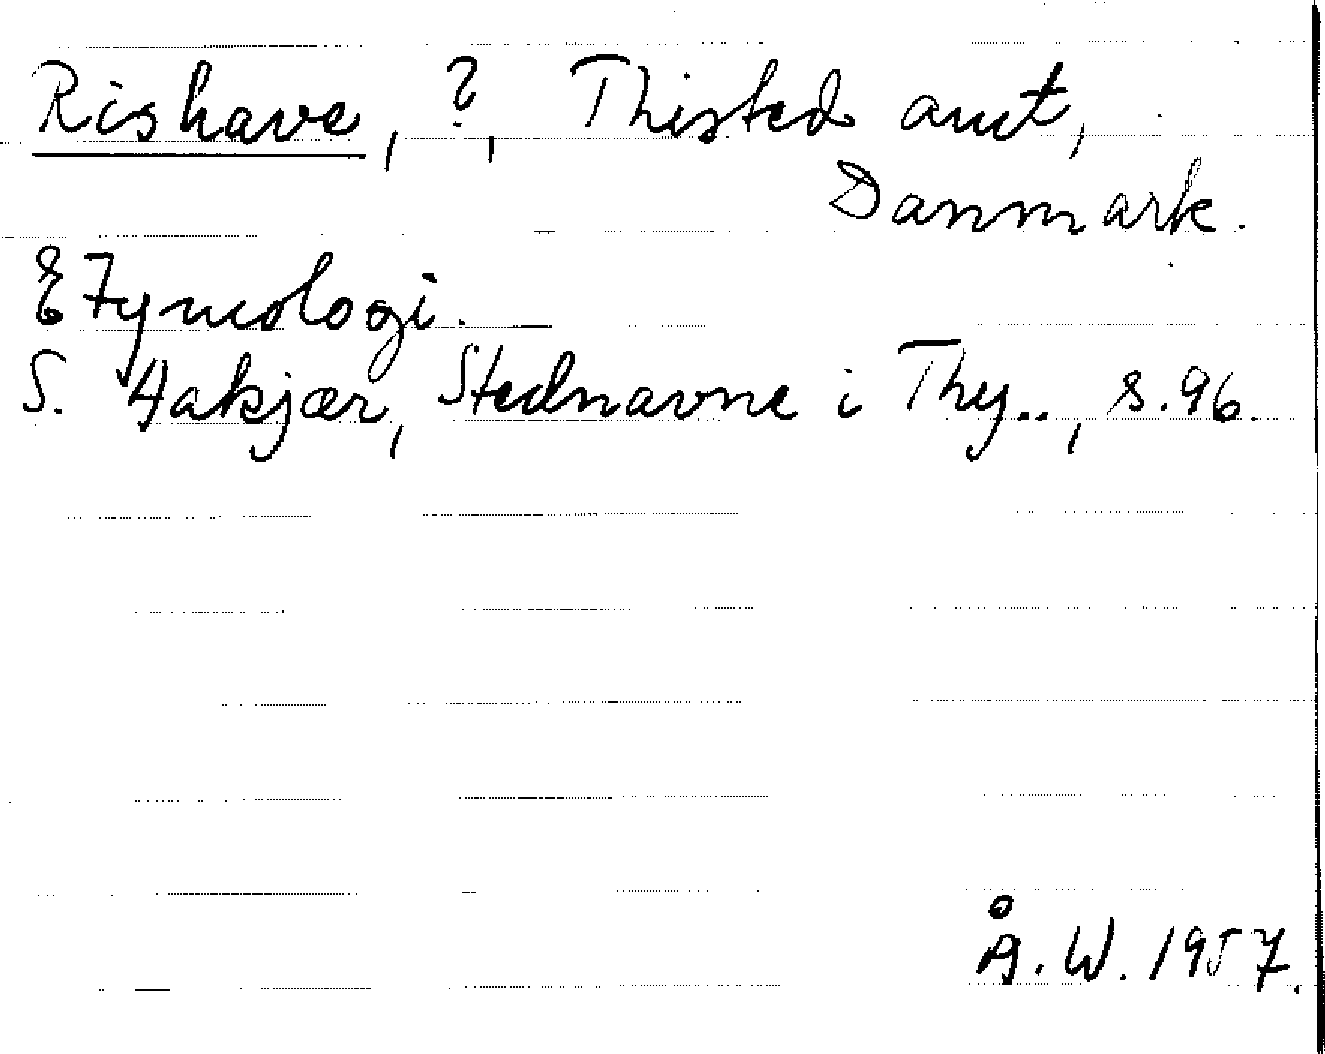 Rishave, ?, Thisted amt,
Danmark.
Etymologi.
S. Hakjær, Stednavne i Thy.., s. 96.
Å. W. 1957.